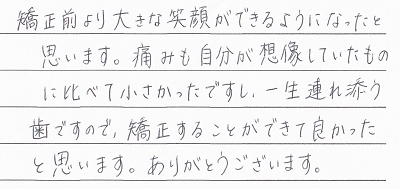 矯正前より大きな笑顔ができるようになったと
思います。痛みも自分が想像していたもの
に比べて小さかったですし、一生連れ添う
歯ですので、矯正することができて良かった
と思います。ありがとうございます。